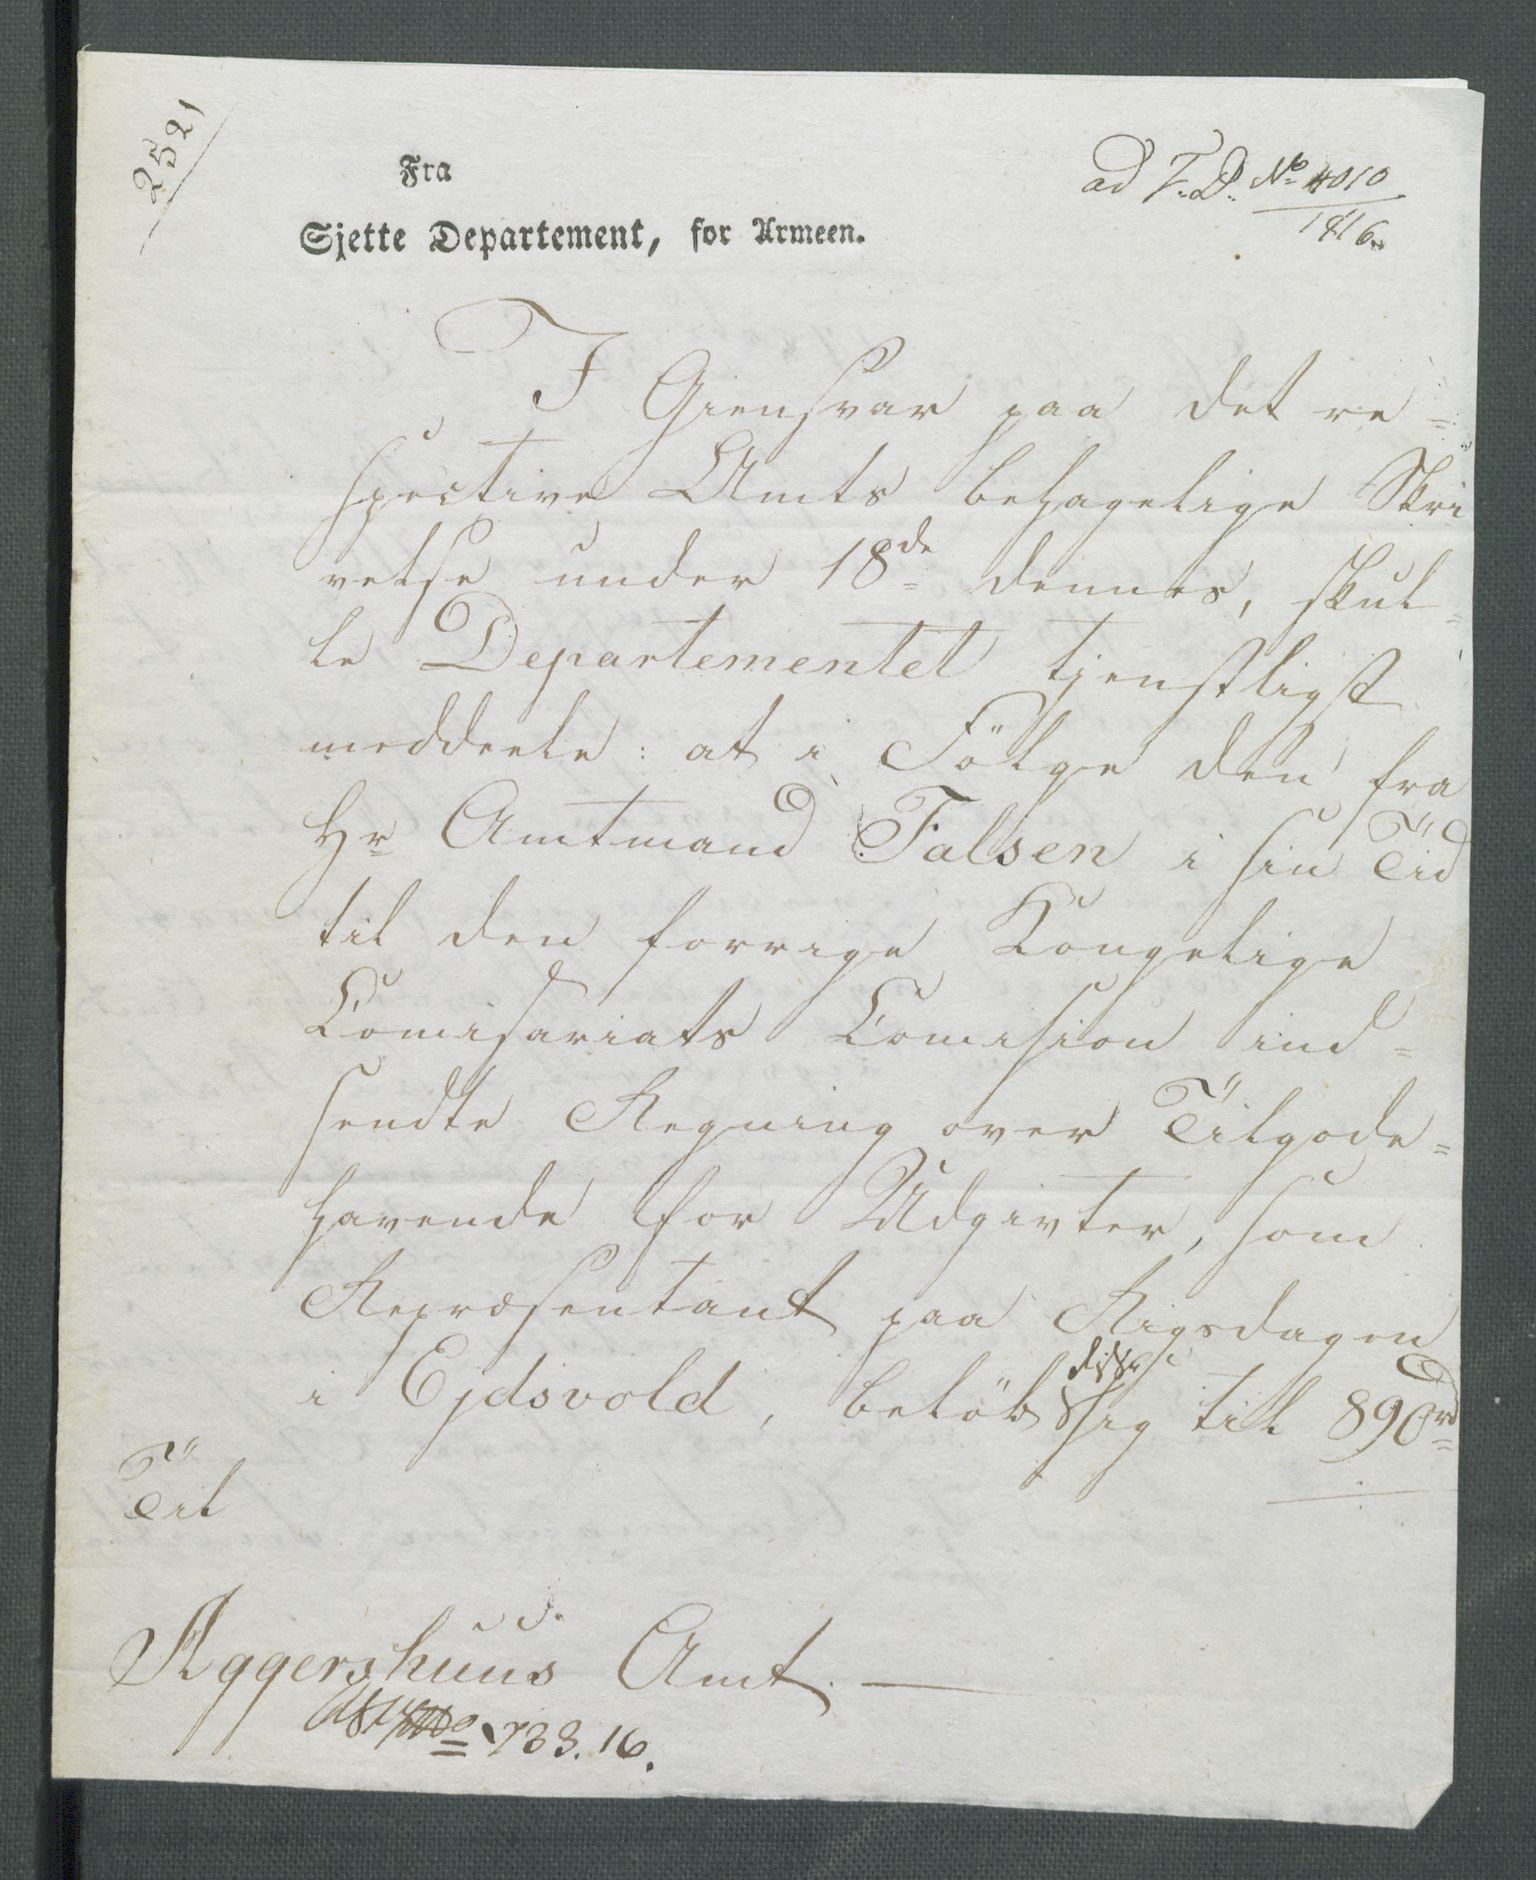 2521
Fra
Sjette Departement, for Armeen.
ad F. D. No 4010
1816.
I Giensvar paa det re=
spective Amts behagelige Skri
velse under 18de dennes, skul=
le Departementet tjenstligst
meddeele: at i Følge den fra
Hr Amtmand Falsen i sin Tiid
til den forrige Kongelige
Comisariats Comision ind=
sendte Regning over Tilgode=
havende for Udgivter, som
Repræsentant paa Rigsdagen
i Ejdsvold, beløb disse sig til 890rd
Til
Aggershuus Amt.
733.16.